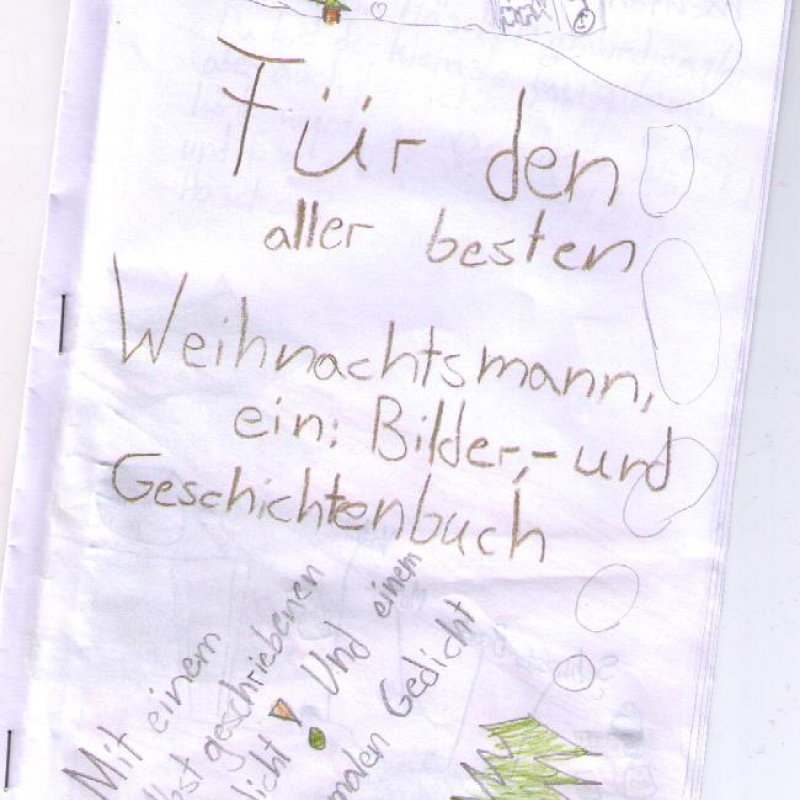 Für den
aller besten
Weihnachtsmann,
ein: Bilder,- und
Geschichtenbuch
Mit einem
geschriebenen
Und einem
Gedicht